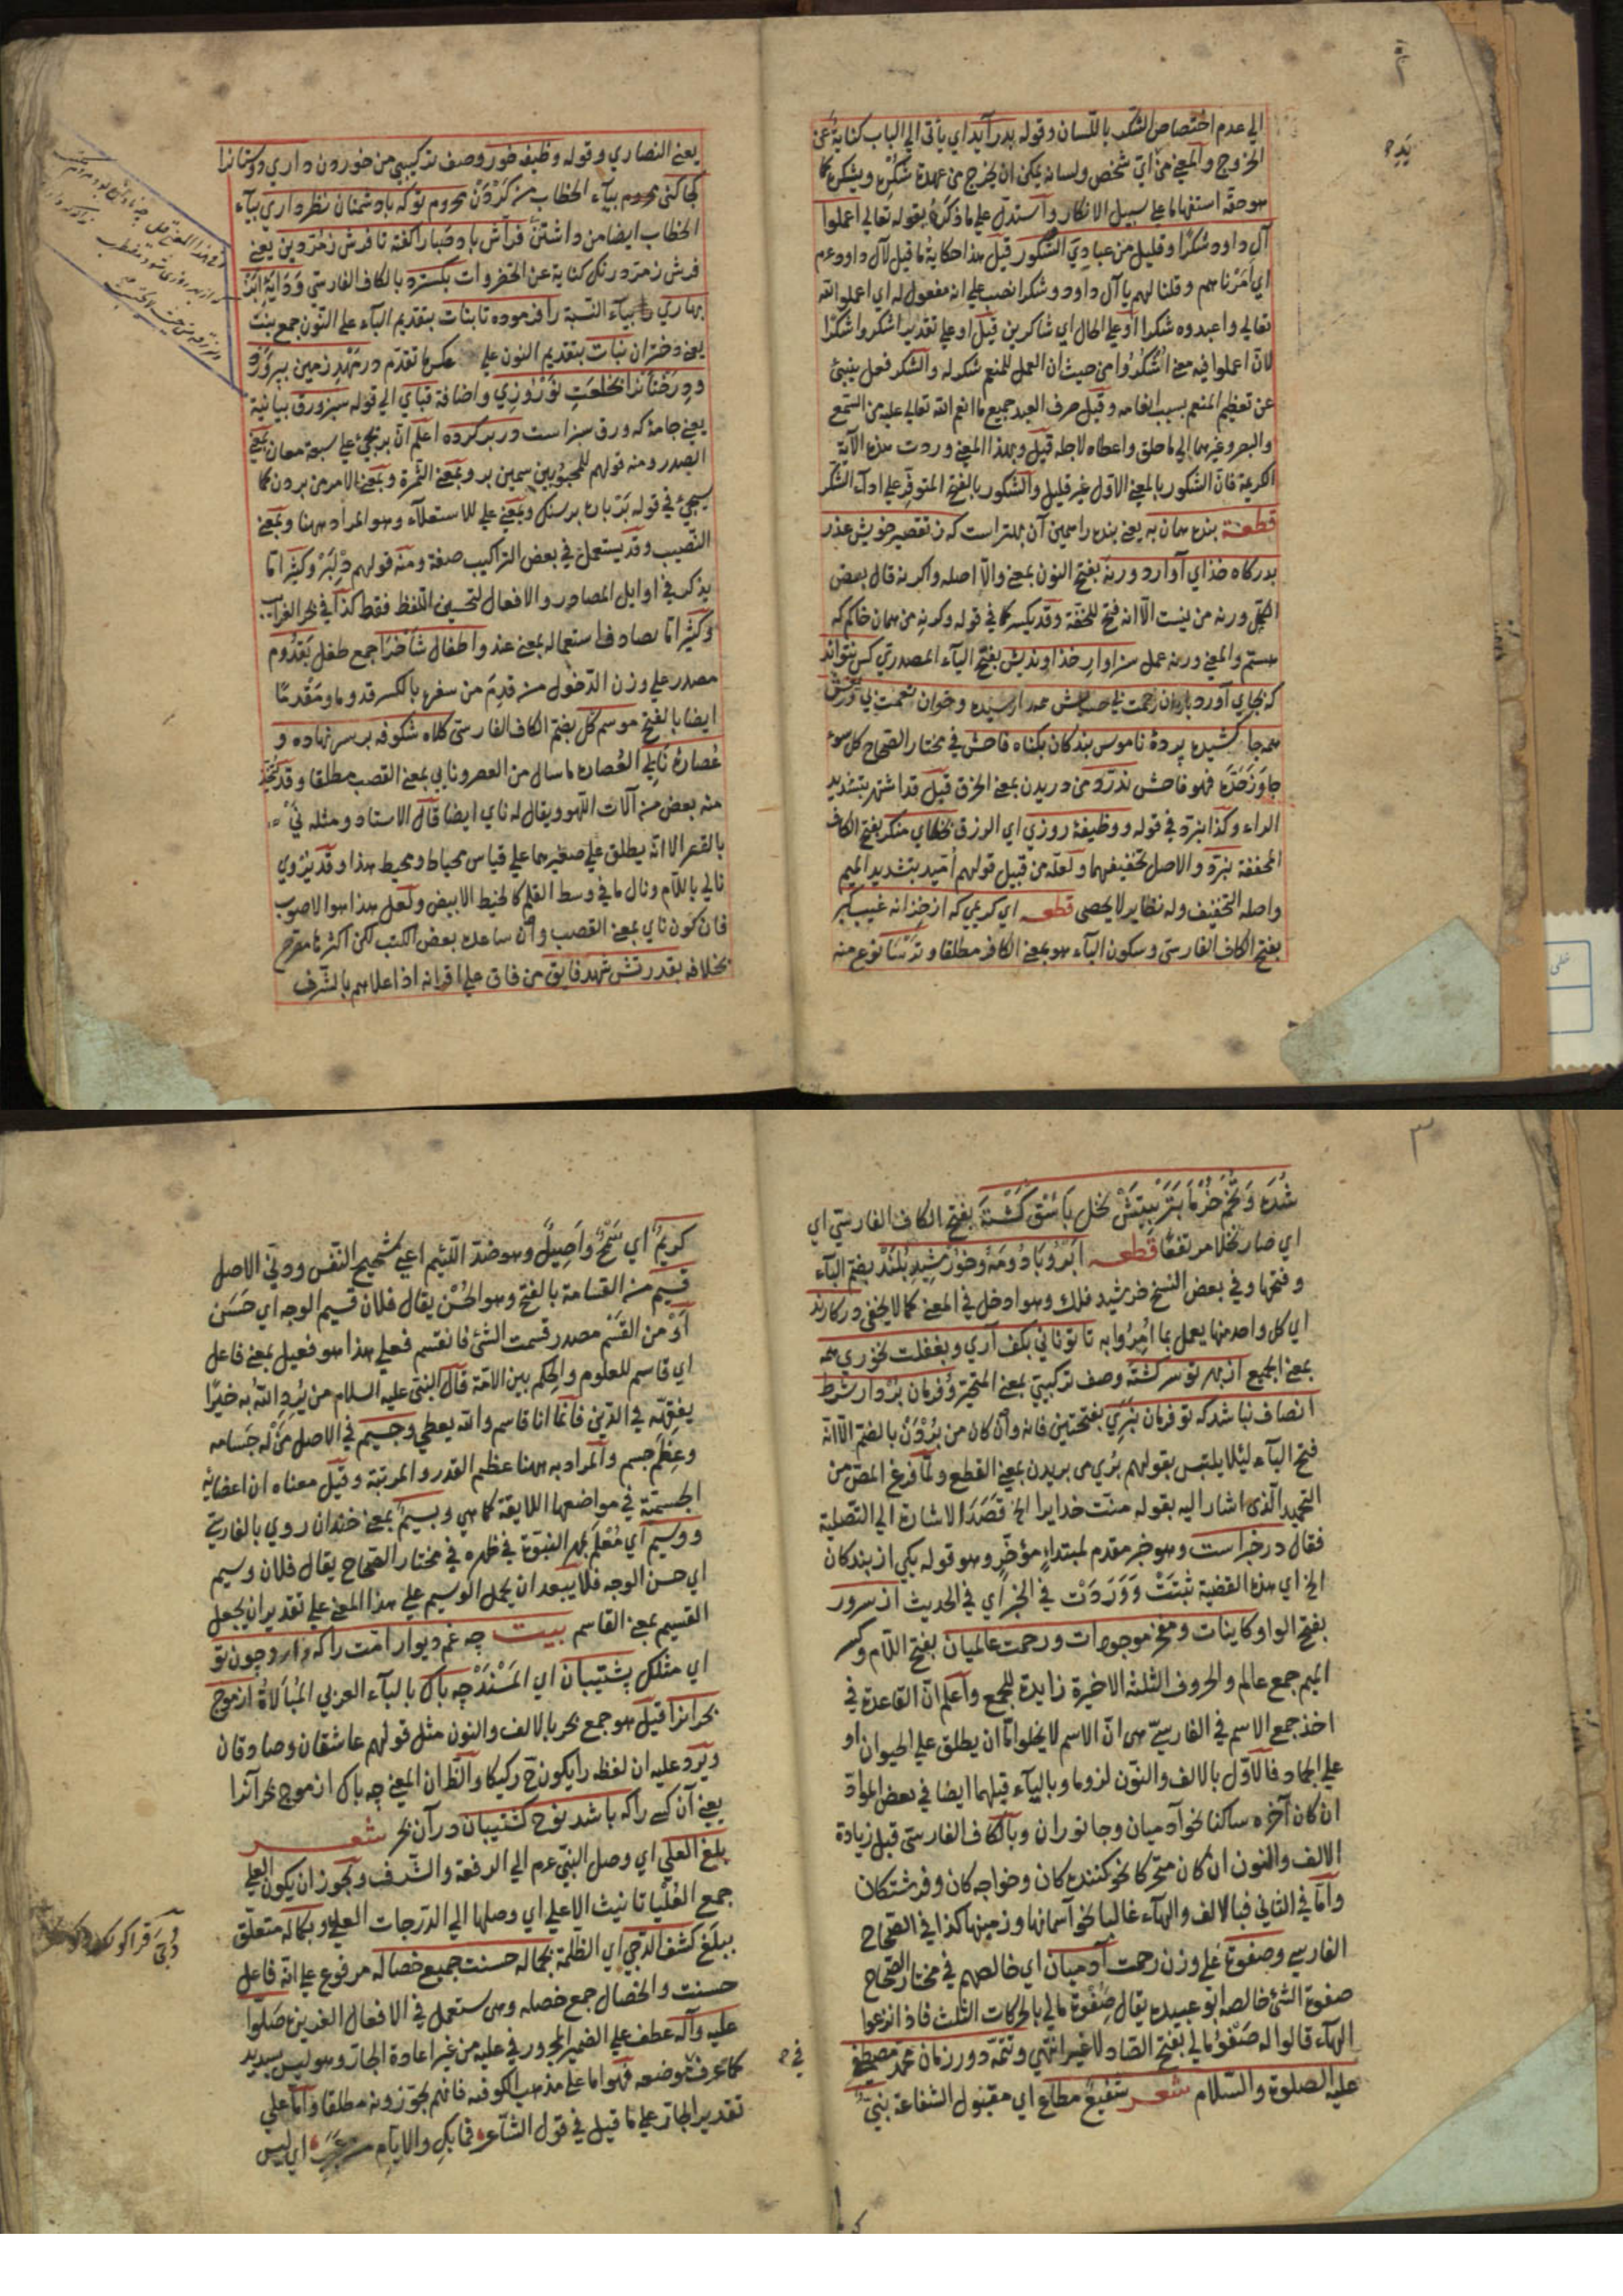 الي عدم اختصاص الشكر باللسان وقوله بدر آيد اي ياتي الي الباب كناية عن
الخروج والمعني من اي شخص ولسانه يمكن ان يخرج من عهدة شكره ويشكره كما
هو حقه استفهاما علي سبيل الانكار واستدل علي ما ذكره بقوله تعالي اعملوا
آل داود شكرا وقليل من عبادي الشكور قيل هذا حكاية ما قيل لآل داود عم
اي امرناهم وقلنا لهم يا آل داود وشكرا نصب علي انه مفعول له اي اعملوا الله
تعالي واعبدوه شكرا او علي الحال اي شاكرين قيل او علي تقدير اشكروا شكرا
لان اعملوا فيه معني اشكروا من حيث ان العمل للمنعم شكر له والشكر فعل ينبئ
عن تعظيم المنعم بسبب انعامه وقيل صرف العبد جميع ما انعم الله تعالي عليه من السمع
والبصر وغيرهما الي ما خلق واعطاه لاجله قيل وبهذا المعني وردت هذه الآية
الكريمة فان الشكور بالمعني الاول غير قليل والشكور بالفتح المتوفر علي اداء الشكر
قطعة بنده همان به يعني بنده را همين آن بهتر است كه ز تقصير خويش عذر
بدركاه خداي آوارد ورنه بفتح النون بمعني والا اصله واكر نه قال بعض
الكمل ورنه من نيست الا انه فتح للخفة وقد يكسر كما في قوله وكر نه من همان خاكم كه
هستم والمعني ورنه عمل سزاوار خداونديش بفتح الياء المصدري كس نتواند
كه بجاي آورد باران رحمت بي حسابش همه را رسيده وخوان نعمت بي دريغش
همه جا كشيده پردۀ ناموس بندكان بكناه فاحش في مختار الصحاح كل سوء
جاوز حده فهو فاحش ندرد من دريدن بمعني الخرق قيل قد اشتهر بتشديد
الراء وكذا نبرد في قوله ووظيفۀ روزي اي الرزق بخطاي منكر بفتح الكاف
المخففة نبرد والاصل تخفيفهما ولعله من قبيل قولهم اميد بتشديد الميم
واصله التخفيف وله نظاير لا يحصي قطعه اي كريمي كه از خزانه غيب كبر
بفتح الكاف الفارسي وسكون الباء هو بمعني الكافر مطلقا وترسا نوع منه
يعني النصاري وقوله وظيفه خور وصف تركيبي من خوردن داري دوستانرا
كجا كني محروم بياء الخطاب من كردن محروم توكه با دشمنان نظر داري بياء
الخطاب ايضا من داشتن فراش باد صبا را كفته تا فرش زمردين يعني
فرش زمرد رنك كناية عن الخضروات بكسترد بالكاف الفارسي وداية ابر
بهاري بياء النسبة را فرموده تا بنات بتقديم الباء علي النون جمع بنت
يعني دختران نبات بتقديم النون علي عكس ما تقدم در مهد زمين بپرورد
ودرختانرا بخلعت نوروزي واضافة قباي الي قوله سبز ورق بيانية
يعني جامۀ كه ورق سبز است در بر كرده اعلم ان بر يجيء علي سبعة معان بمعني
الصدر ومنه قولهم للمحبوبين سيمين بر وبمعني الثمرة وبمعني الامر من بردن كما
سيجيء في قوله بر سنك وبمعني علي للاستعلاء وهو المراد ههنا وبمعني
النصيب وقد يستعمل في بعض التراكيب صفة ومنه قولهم دلبر وكثيرا ما
يذكر في اوايل المصادر والافعال لتحسين اللفظ فقط كذا في بحر الغرايب
وكثيرا ما يصادف استعماله بمعني عند واطفال شاخرا جمع طفل بقدوم
مصدر علي وزن الدخول من قدم من سفره بالكسر قدوما ومقدما
ايضا بالفتح موسم كل بضم الكاف الفارسي كلاه شكوفه بر سر نهاده و
عصارۀ نايي العصاره ما سال من العصر ونايي بمعني القصب مطلقا وقد يتخذ
منه بعض من آلات اللهو ويقال له ناي ايضا قال الاستاد ومثله ني
بالقصر الا انه يطلق علي صغيرهما علي قياس محياط ومحيط هذا وقد يروي
نالي باللام ونال ما في وسط القلم كالخيط الابيض ولعل هذا هو الاصوب
فان كون ناي بمعني القصب وان ساعده بعض الكتب لكن اكثرها مصرح
بخلافه بقدرتش شهد فايق من فاق علي اقرانه اذا علاهم بالشرف
٣
شده وتخم خرما بتربيتش نخل باسق كشته بفتح الكاف الفارسي اي
اي صار نخلا مرتفعا قطعه ابر وباد ومه وخورشيد بلند بضم الباء
وفتحها وفي بعض النسخ خورشيد فلك وهو ادخل في المعني كما لا يخفي در كارند
اي كل واحد منها يعمل بما امروا به تا تو ناني بكف آري وبغفلت نخوري همه
بمعني الجميع از بهر تو سركشته وصف تركيبي بمعني المتحير وفرمان بردار شرط
انصاف نباشد كه تو فرمان نبري بفتحتين فانه وان كان من بردن بالضم الا انه
فتح الباء لئلا يلتبس بقولهم بري من بريدن بمعني القطع ولما فرغ المص من
التحميد الذي اشار اليه بقوله منت خدايرا الخ قصد الاشارة الي التصلية
فقال در خبر است وهو خبر مقدم لمبتداء مؤخر وهو قوله يكي از بندكان
الخ اي هذه القضية ثبتت ووردت في الخبر اي في الحديث از سرور
بفتح الواو كاينات ومفخر موجودات ورحمت عالميان بفتح اللام وكسر
الميم جمع عالم والحروف الثلثة الاخيرة زايدة للجمع واعلم ان القاعدة في
اخذ جمع الاسم في الفارسي هي ان الاسم لا يخلو اما ان يطلق علي الحيوان او
علي الجماد فالاول بالالف والنون لزوما وبالياء قبلهما ايضا في بعض المواد
ان كان آخره ساكنا نحو آدميان وجانوران وبالكاف الفارسي قبل زيادة
الالف والنون ان كان متحركا نحو كننده كان وخواجه كان وفرشتكان
واما في الثاني فبالالف والهاء غالبا نحو آسمانها وزمينها كذا في الصحاح
الفارسي وصفوة علي وزن رحمت آدميان اي خالصهم في مختار الصحاح
صفوة الشئ خالصه ابو عبيده يقال صفوة مالي بالحركات الثلث فاذا نزعوا
الهاء قالوا له صفو مالي بفتح الصاد لا غير انتهي وتتمه دور زمان محمد مصطفي
عليه الصلوة والسلام شعر شفيع مطاع اي مقبول الشفاعة نبي
كريم اي سمح واصيل وهو ضد اللئيم اعني شحيح النفس ودني الاصل
قسيم من القسامة بالفتح وهو الحسن يقال فلان قسيم الوجه اي حسن
او من القسم مصدر قسمت الشئ فانقسم فعلي هذا هو فعيل بمعني فاعل
اي قاسم للعلوم والحكم بين الامة قال النبي عليه السلام من يرد الله به خيرا
يفقهه في الدين فانما انا قاسم والله يعطي وجسيم في الاصل من له جسامه
وعظم جسم والمراد به ههنا عظيم القدر والمرتبة وقيل معناه ان اعضائه
الجسمية في مواضعها اللايقة كما هي وبسيم بمعني خندان روي بالفارسي
ووسيم اي معلم بمهر النبوة في ظهره في مختار الصحاح يقال فلان وسيم
اي حسن الوجه فلا يبعد ان يحمل الوسيم علي هذا المعني علي تقدير ان يجعل
القسيم بمعني القاسم بيت چه غم ديوار امت را كه دارد چون تو
اي مثلك پشتيبان اي المسند چه باك بالباء العربي المبالاة از موج
بحر انرا قيل هو جمع بحر بالالف والنون مثل قولهم عاشقان وصادقان
ويرد عليه ان لفظه را يكون ح ركيكا والظ ان المعني چه باك از موج بحر آنرا
يعني آن كسي را كه باشد نوح كشتيبان در آن بحر شعر
بلغ العلي اي وصل النبي عم الي الرفعة والشرف ويجوز ان يكون العلي
جمع العليا تانيث الاعلي اي وصلها الي الدرجات العلي وبكماله متعلق
ببلغ كشف الدجي اي الظلمة بجماله حسنت جميع خصاله مرفوع علي انه فاعل
حسنت والخصال جمع خصله وهي ستعمل في الافعال الغريزه صلوا
عليه وآله عطف علي الضمير المجرور في عليه من غير اعادة الجار وهو ليس بسديد
كما عرف موضعه فهو اما علي مذهب الكوفيه فانهم يجوزونه مطلقا واما علي
تقدير الجار علي ما قيل في قول الشاعر فما بك والايام من عجب اي ليس